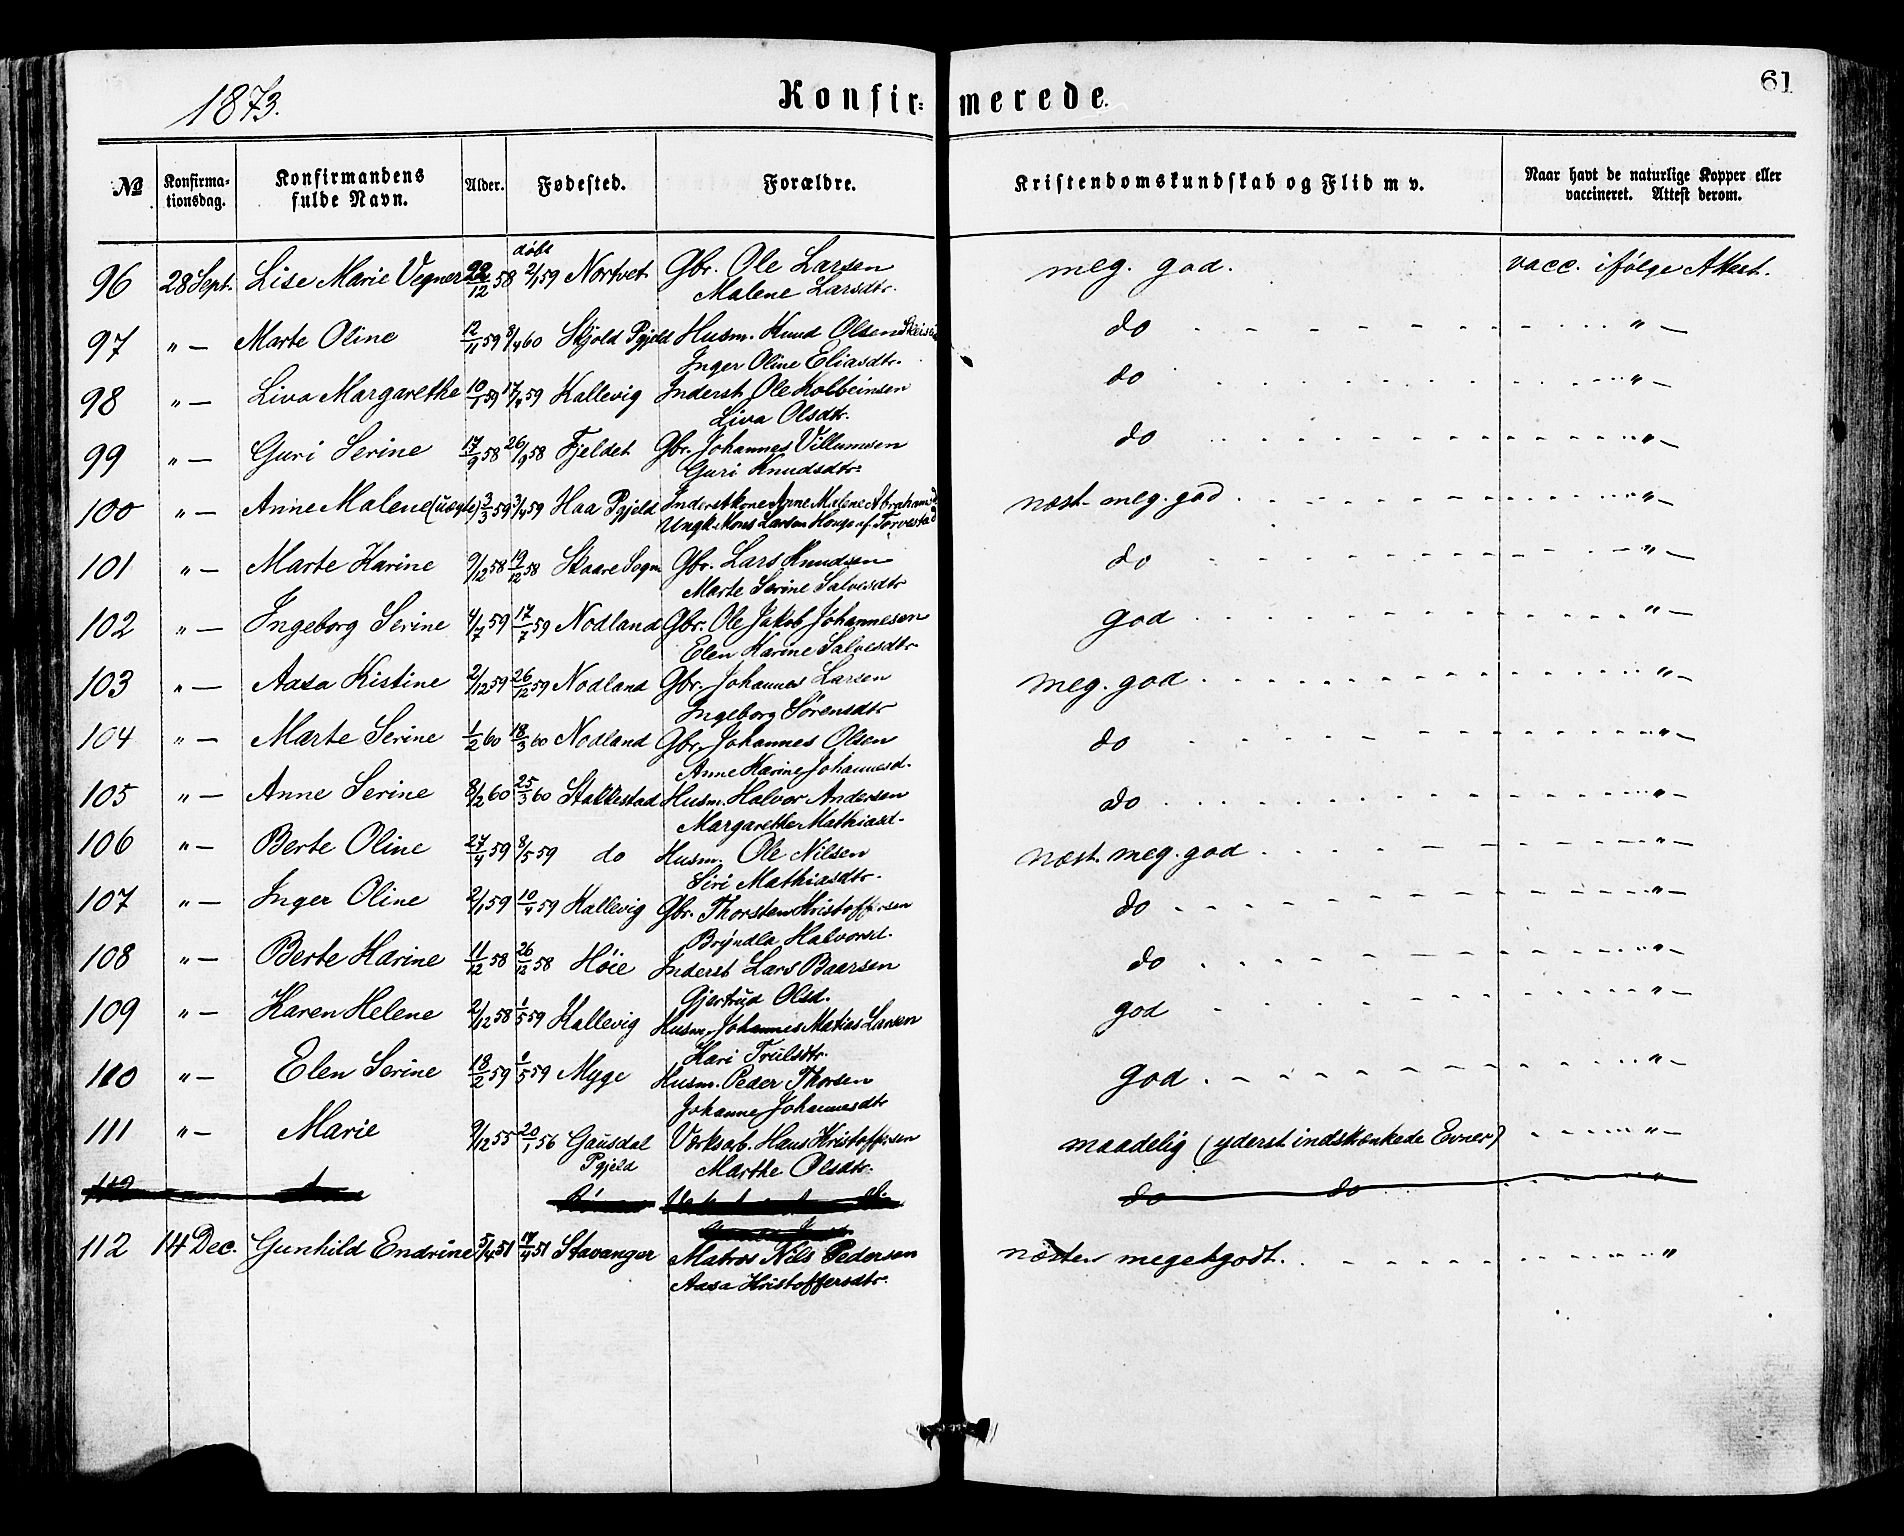 1873. Konfirmerede. 61
№ Konfirmationsdag. Konfirmandens fulde Navn. Alder. Fødested. Forældre. Kristendomskundskab og Flid m v. Naar havt de naturlige Kopper eller vaccineret. Attest derom.
døbt
96 28 Sept. Lise Marie Vegner 22/12 58 2/1 59 Nortvet Gbr. Ole Larsen meg. god. vacc. ifølge Attest.
Malene Larsdtr.
97 " — Marte Oline 12/11 59 8/4 60 Skjold Pgjeld Husm. Knud Olsen do " —
Inger Oline Eliasdtr.
98 " — Liva Margarethe 10/1 59 17/4 59 Kallevig Inderst Ole Kolbeinsen do " —
Liva Olsdtr.
99 " — Guri Serine 17/9 58 26/9 58 Fjeldet Gbr. Johannes Villumsen do " —
Guri Knudsdtr.
100 " — Anne Malene (uægte) 3/3 59 3/4 59 Haa Pgjeld Inderstkone Anne Malene Abrahamsd næst. meg. god " —
Ungk. Mons Larsen Hauge af Torvestad
101 " — Marte Karine 9/12 58 19/12 58 Skaare Sogn Gbr. Lars Knudsen do " —
Marte Serine Salvesdtr
102 " — Ingeborg Serine 4/7 59 17/7 59 Nodland Gbr. Ole Jakob Johannesen god " —
Elen Karine Salvesdtr.
103 " — Aasa Kistine 2/12 59 26/12 59 Nodland Gbr. Johannes Larsen meg. god " —
Ingeborg Sørensdtr
104 " — Marte Serine 1/2 60 18/3 60 Nodland Gbr. Johannes Olsen do " —
Anne Karine Johannesd.
105 " — Anne Serine 8/2 60 25/3 60 Stakkestad Husm. Halvor Andersen do " —
Margarethe Mathiasd.
106 " — Berte Oline 27/4 59 8/5 59 do Husm. Ole Nilsen næst. meg. god " —
Siri Mathiasdtr.
107 " — Inger Oline 2/1 59 10/4 59 Kallevig Gbr. Thorsten Kristoffersen do " —
Bryndla Halvorsd.
108 " — Berte Karine 11/12 58 26/12 58 Høie Inderst Lars Baarsen do " —
Gjertrud Olsd.
109 " — Karen Helene 2/12 58 1/5 59 Kallevig Husm. Johannes Matias Larsen god " —
Kari Trulsdtr.
110 " — Elen Serine 18/2 59 1/5 59 Myge Husm. Peder Thorsen god " —
Johanne Johannesdtr
111 " — Marie 9/12 55 20/1 56 Gausdal Pgjeld Værksarb. Hans Kristoffersen maadelig (yderst indskænkede Evner) " —
Marthe Olsdtr.
112 do do "
112 14 Dec. Gunhild Endrine 5/4 51 14/4 51 Stavanger Matros Nils Pedersen næsten meget godt. "
Aasa Kristoffersdtr.